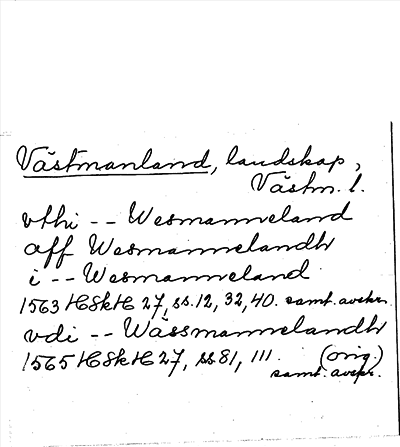 Västmanland, landskap,
Västm. l.
vthi -- Wesmanneland
aff Wesmannelandh
i -- Wesmanneland
1563 HSkH 27, ss. 12, 32, 40. samt. avskr.
vdi -- Wässmannelandh
1565 HSkH 27, ss 81, 111. (orig.)
samt. avskr.